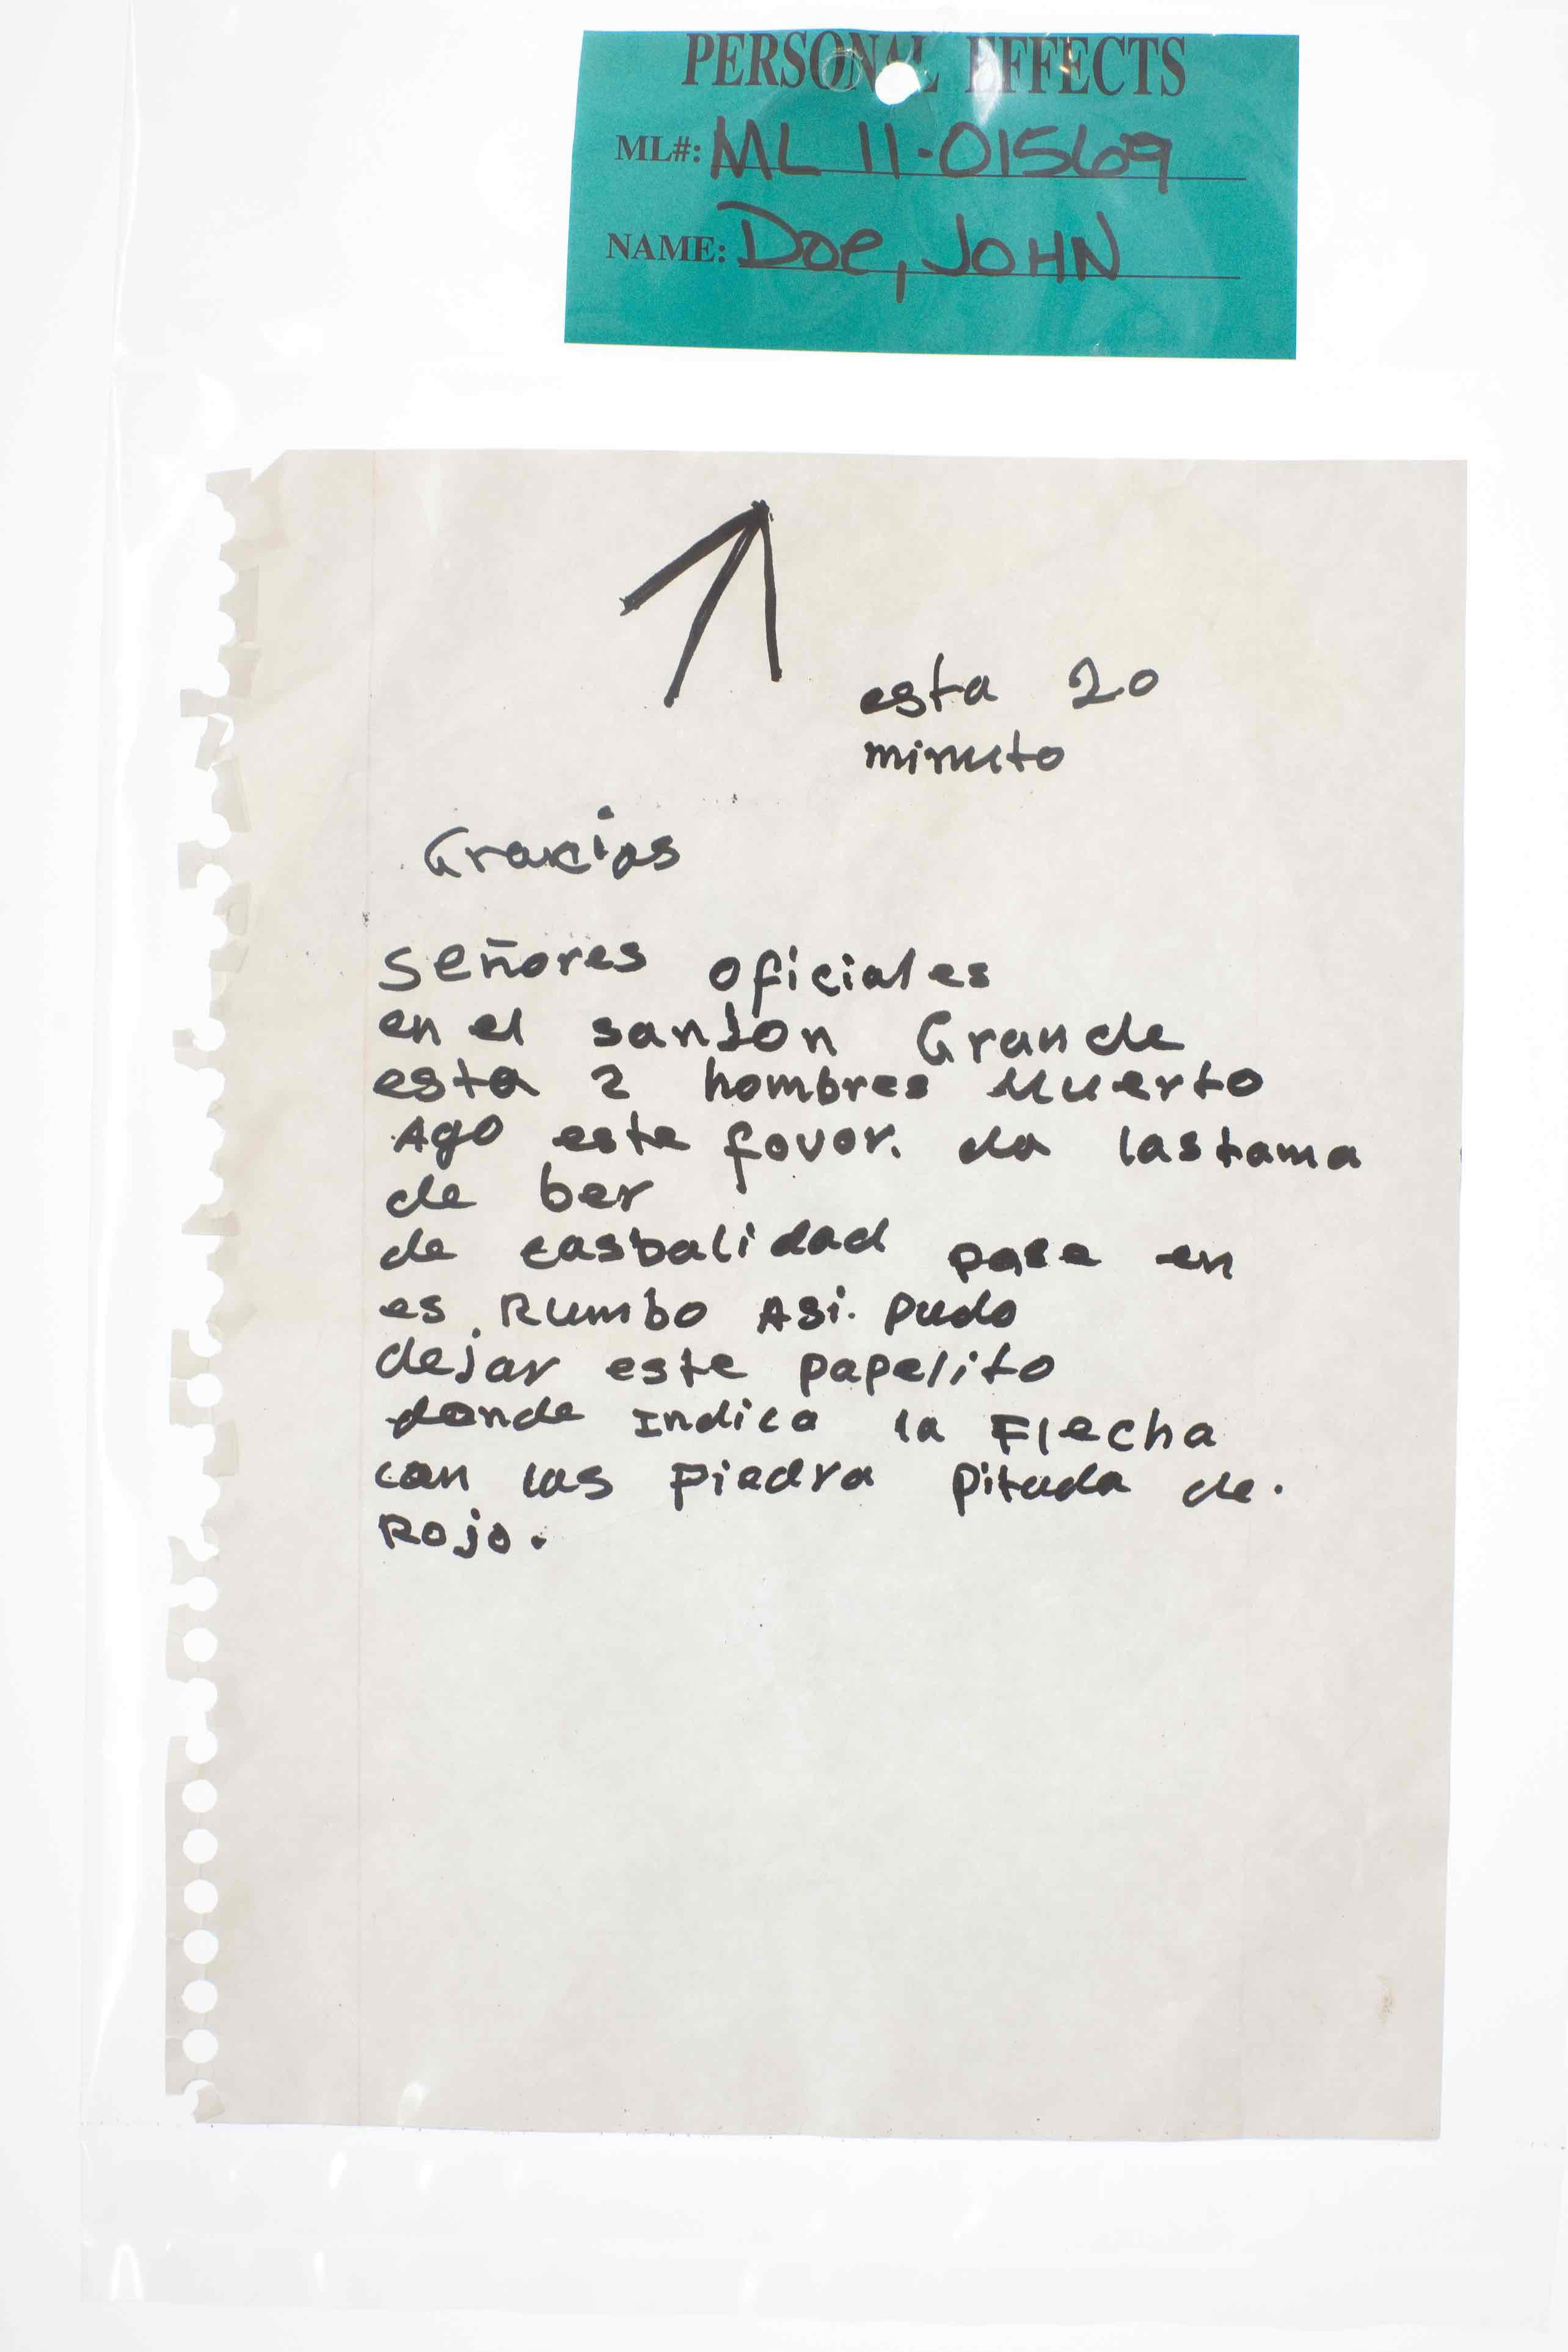 PERSONAL EFFECTS
ML#: ML 11-01569
NAME: Doe, JOHN
esta 20
minuto
Gracias
Señores oficiales
en el sanJon Grande
esta 2 hombres Muerto
Ago este favor. da lastama
de ber
de casbalidad pase en
es Rumbo Asi. pudo
dejar este papelito
donde Indica la Flecha
con las piedra pitada de.
Rojo.